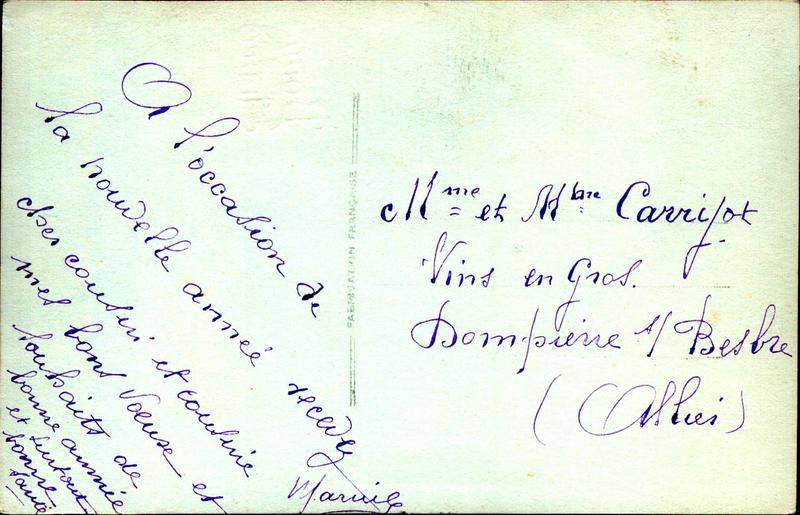 A l'occasion de
la nouvelle année recevez
cher cousin et cousine
mes bons Voeux et
souhaits de
bonne année
et surtout
bonne
santé
FABRICATION FRANÇAISE
Mme et Mbre Carrijot
Vins en Gros.
Dompierre s/ Besbre
(Allier)